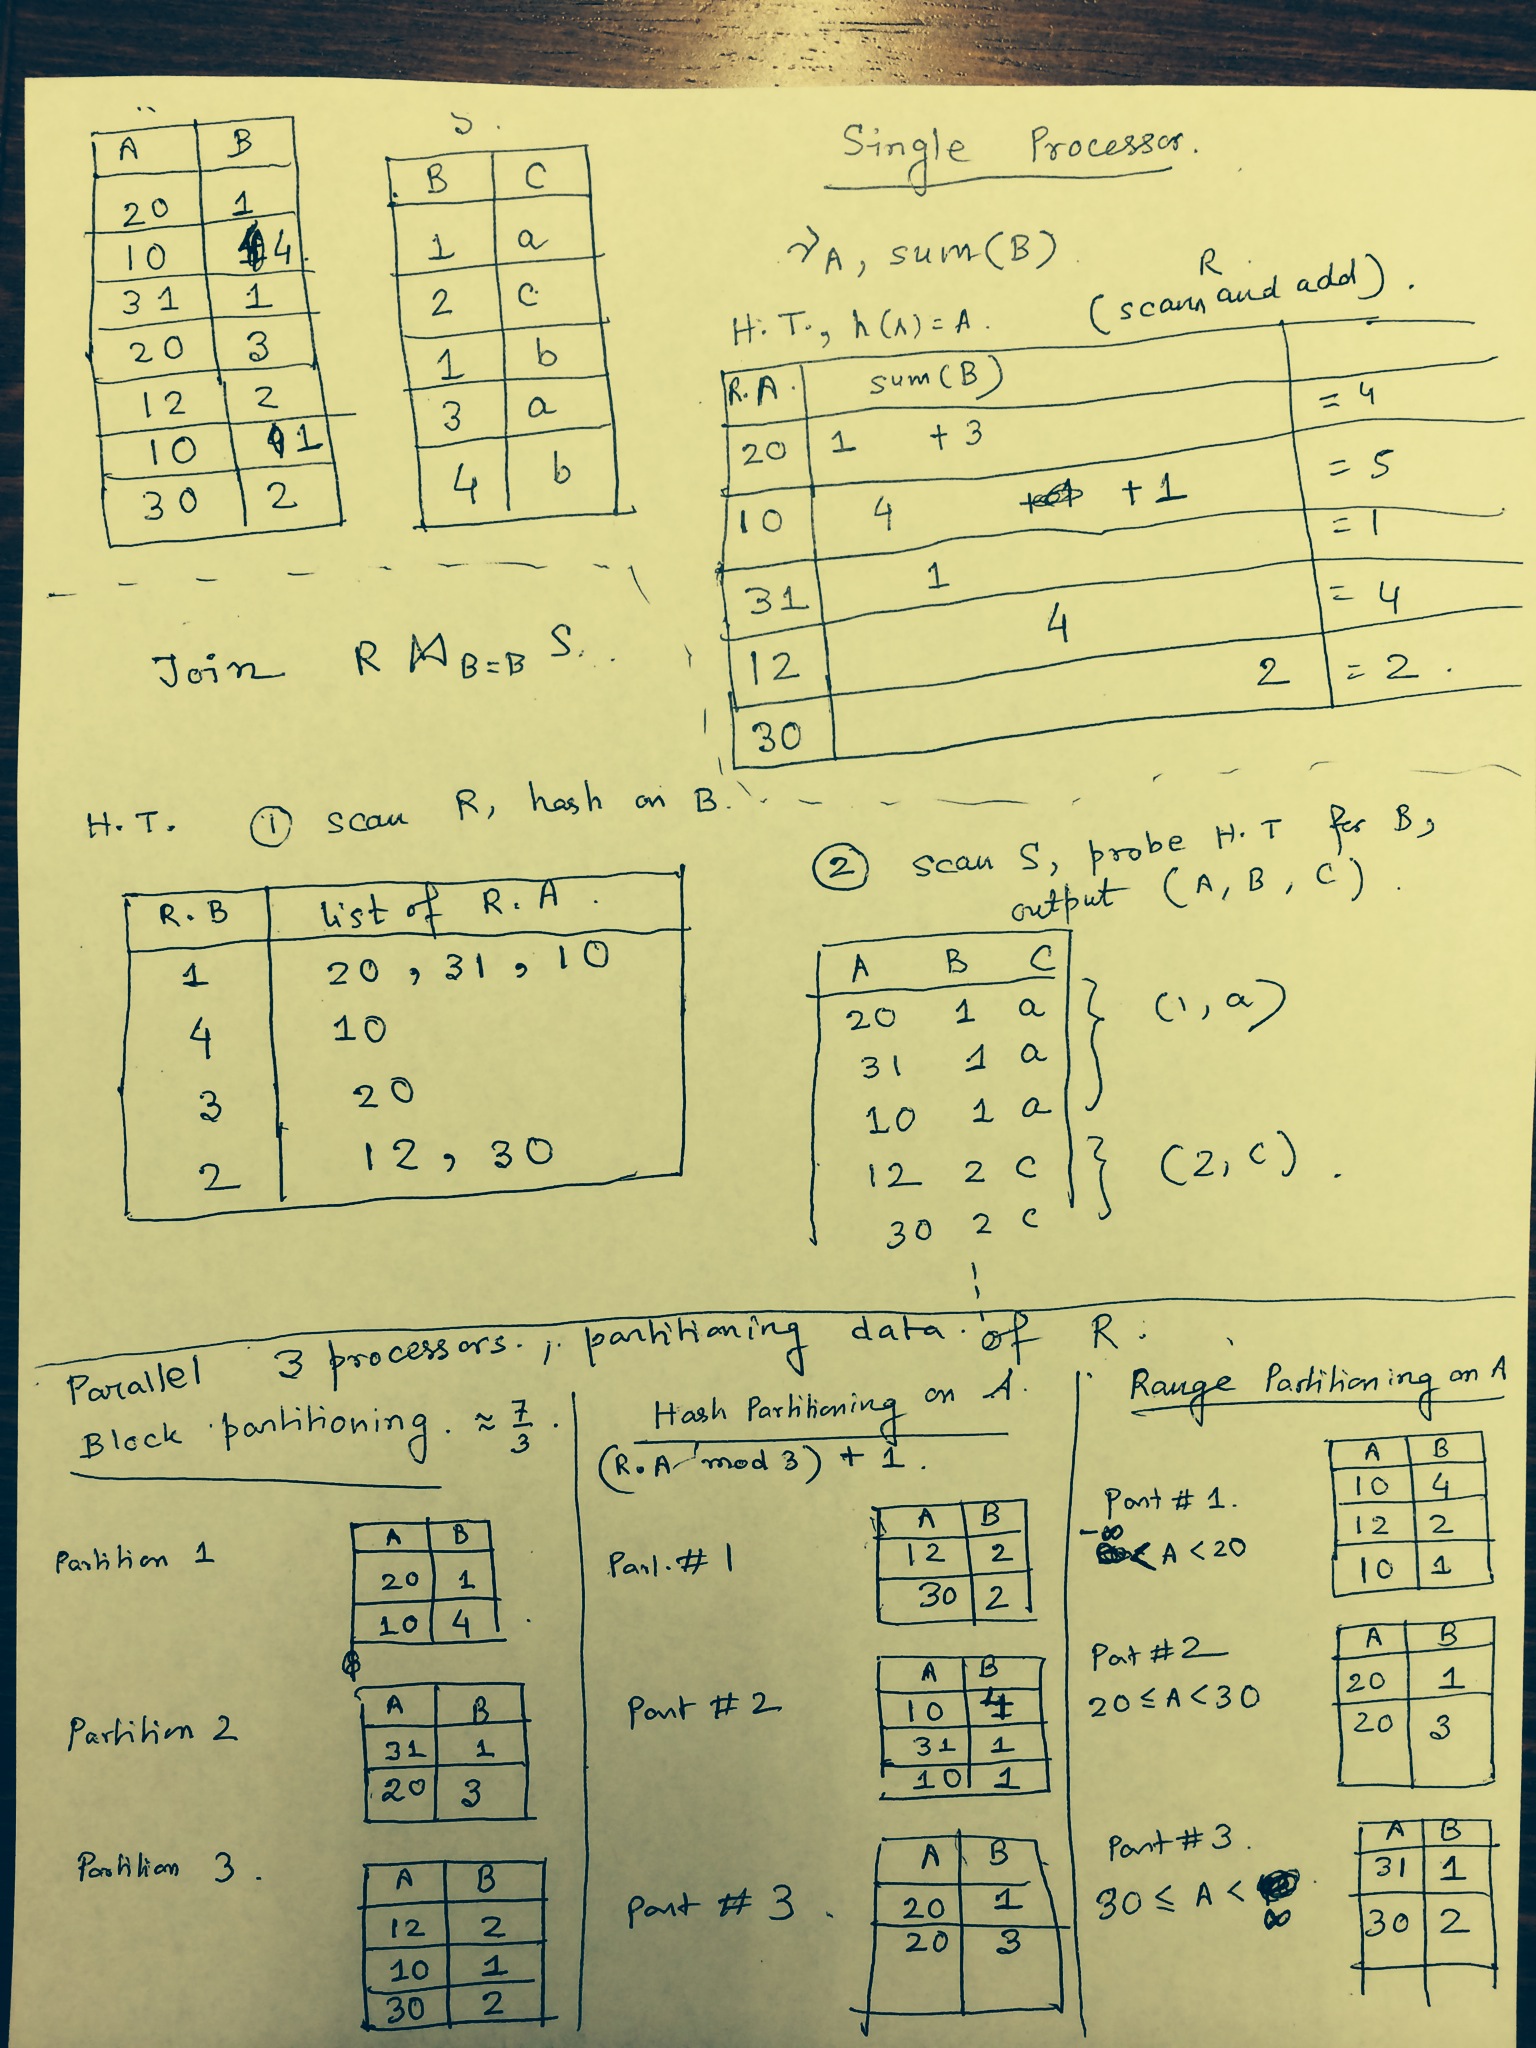 A B
20 1
10 4
31 1
20 3
12 2
10 1
30 2
S.
B C
1 a
2 c
1 b
3 a
4 b
Single Processor.
γ A, sum(B)
R
H.T., h(A) = A. (scan and add).
R.A. sum(B)
20 1 + 3 = 4
10 4 + 1 = 5
31 1 = 1
12 4 = 4
30 2 = 2.
Join R ⋈ B=B S.
H.T. ① scan R, hash on B.
R.B list of R.A.
1 20, 31, 10
4 10
3 20
2 12, 30
② scan S, probe H.T for B,
output (A, B, C).
A B C
20 1 a
31 1 a
10 1 a
(1, a)
12 2 c
30 2 c
(2, c).
Parallel 3 processors.; partitioning data of R.
Block partitioning. ≈ 7/3.
Partition 1
A B
20 1
10 4
Partition 2
A B
31 1
20 3
Partition 3.
A B
12 2
10 1
30 2
Hash Partitioning on A.
(R.A mod 3) + 1.
Part. # 1
A B
12 2
30 2
Part # 2
A B
10 4
31 1
10 1
Part # 3.
A B
20 1
20 3
Range Partitioning on A
Part # 1.
-∞ < A < 20
A B
10 4
12 2
10 1
Pat # 2
20 ≤ A < 30
A B
20 1
20 3
Part # 3.
30 ≤ A < ∞
A B
31 1
30 2